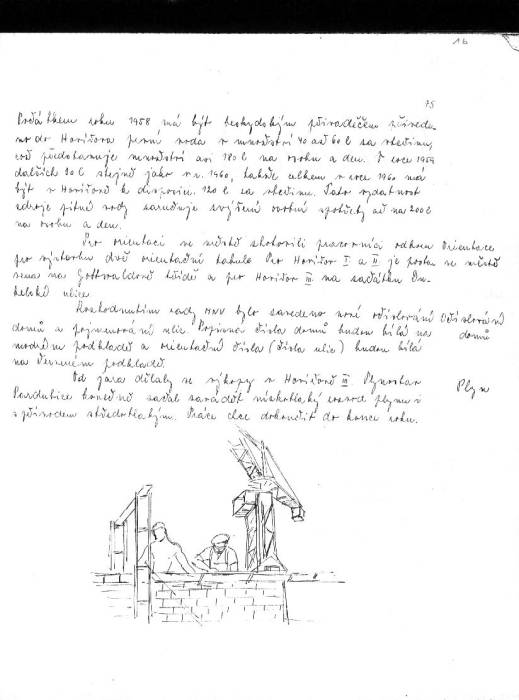 16
75
Počátkem roku 1958 má být beskydským přivaděčem přivede-
no do Havířova první voda v množství 40 až 60 l za vteřinu,
což předokazuje množství asi 180 l na osobu a den. V roce 1959
dalších 20 l stejně jako v r. 1960, takže celkem v roce 1960 má
být v Havířově k dispozici 120 l za vteřinu. Tato vydatnost
zdroje pitné vody zaručuje zvýšení osobní spotřeby až na 200 l
na osobu a den.
Pro orientaci ve městě zhotovili pracovníci odboru Orientace
pro výstavbu dvě orientační tabule. Pro Havířov I a II je posta- ve městě
vena na Gottwaldově třídě a pro Havířov III na začátku
ulice.
Rozhodnutím rady MNV bylo zavedeno nové očíslování Očíslování
domů a pojmenování ulic. Popisná čísla domů budou bílá na domů
modrém podkladě a orientační čísla (čísla ulic) budou bílá
na červeném podkladě.
Od jara dělaly se výkopy v Havířově III. Plynostav Plyn
Pardubice konečně začal zavádět nízkotlaký rozvod plynu i
s přívodem středotlakým. Práce chce dokončit do konce roku.